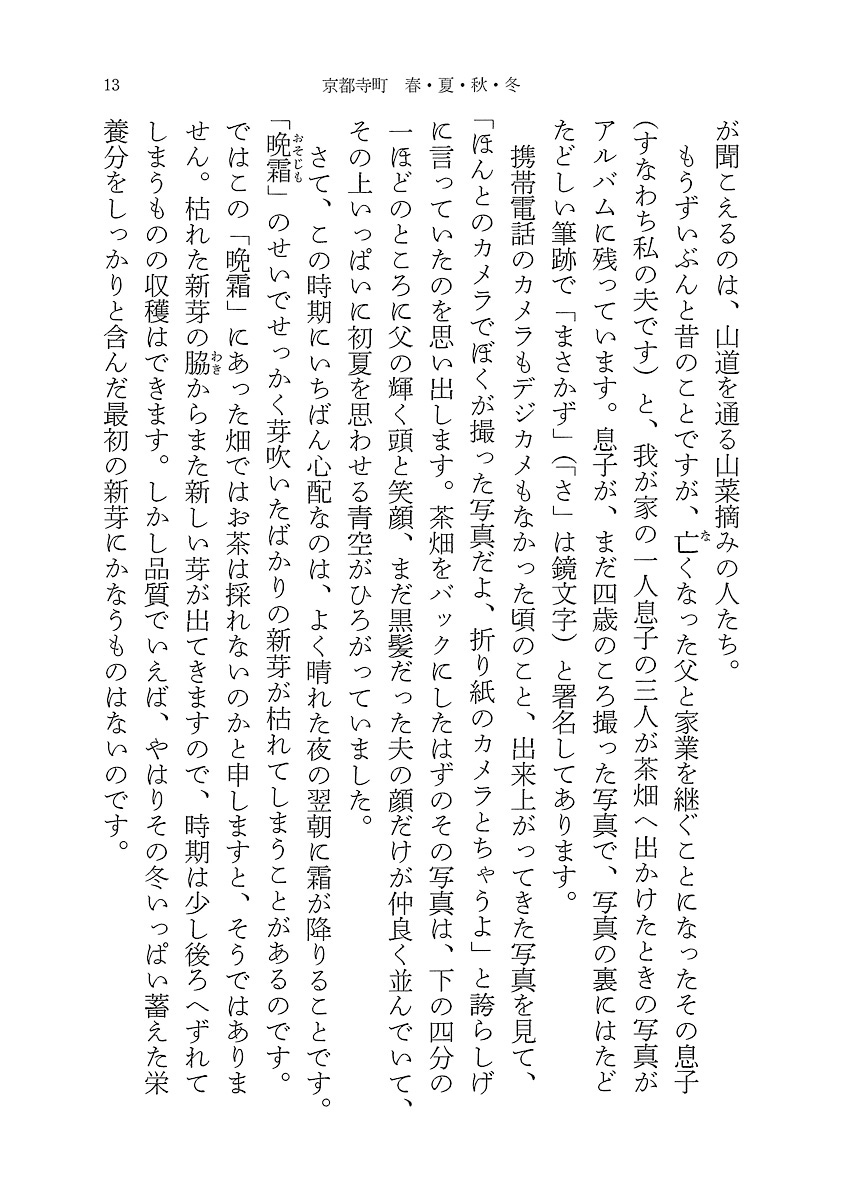 13
京都寺町　春・夏・秋・冬
が聞こえるのは、山道を通る山菜摘みの人たち。
もうずいぶんと昔のことですが、亡くなった父と家業を継ぐことになったその息子
（すなわち私の夫です）と、我が家の一人息子の三人が茶畑へ出かけたときの写真が
アルバムに残っています。息子が、まだ四歳のころ撮った写真で、写真の裏にはたど
たどしい筆跡で「まさかず」（「さ」は鏡文字）と署名してあります。
携帯電話のカメラもデジカメもなかった頃のこと、出来上がってきた写真を見て、
「ほんとのカメラでぼくが撮った写真だよ、折り紙のカメラとちゃうよ」と誇らしげ
に言っていたのを思い出します。茶畑をバックにしたはずのその写真は、下の四分の
一ほどのところに父の輝く頭と笑顔、まだ黒髪だった夫の顔だけが仲良く並んでいて、
その上いっぱいに初夏を思わせる青空がひろがっていました。
さて、この時期にいちばん心配なのは、よく晴れた夜の翌朝に霜が降りることです。
「晩霜」のせいでせっかく芽吹いたばかりの新芽が枯れてしまうことがあるのです。
ではこの「晩霜」にあった畑ではお茶は採れないのかと申しますと、そうではありま
せん。枯れた新芽の脇からまた新しい芽が出てきますので、時期は少し後ろへずれて
しまうものの収穫はできます。しかし品質でいえば、やはりその冬いっぱい蓄えた栄
養分をしっかりと含んだ最初の新芽にかなうものはないのです。
な
おそじも
わき